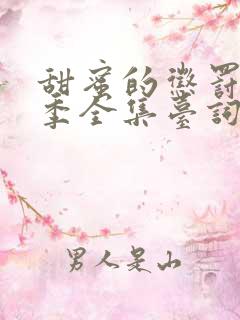 甜蜜的懲罰
季全集臺詞
男人是山